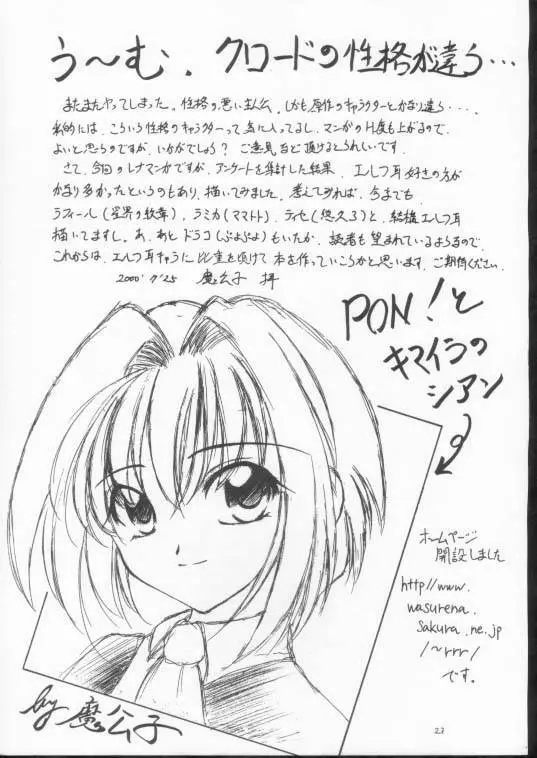 う〜む. クロードの性格が違う…
またまたやってしまった。性格の悪い主人公。しかも原作のキャラクターとかなり違う・・・・。
私的には、こういう性格のキャラクターって気に入ってるし、マンガのH度も上がるので、
よいと思うのですが、いかがでしょう？ ご意見など頂けるとうれしいです。
さて、今回のレナマンガですが、アンケートを集計した結果、エルフ耳好きの方が
かなり多かったというのもあり、描いてみました。考えてみれば、今までも
ラフィール(星界の紋章)、ラミカ(ママトト)、ティセ(悠久3)と、結構エルフ耳
描いてますし。あ、あとドラコ(ぷよぷよ)もいたか。読者も望まれているようなので、
これからは、エルフ耳キャラに比重を傾けて本を作っていこうかと思います。ご期待ください。
2000' 7'25 魔公子 拝
PON！と
キマイラの
シアン
ホームページ
開設しました
http//www.
wasurena.
sakura.ne.jp
/~rrr/
です。
by 魔公子
23